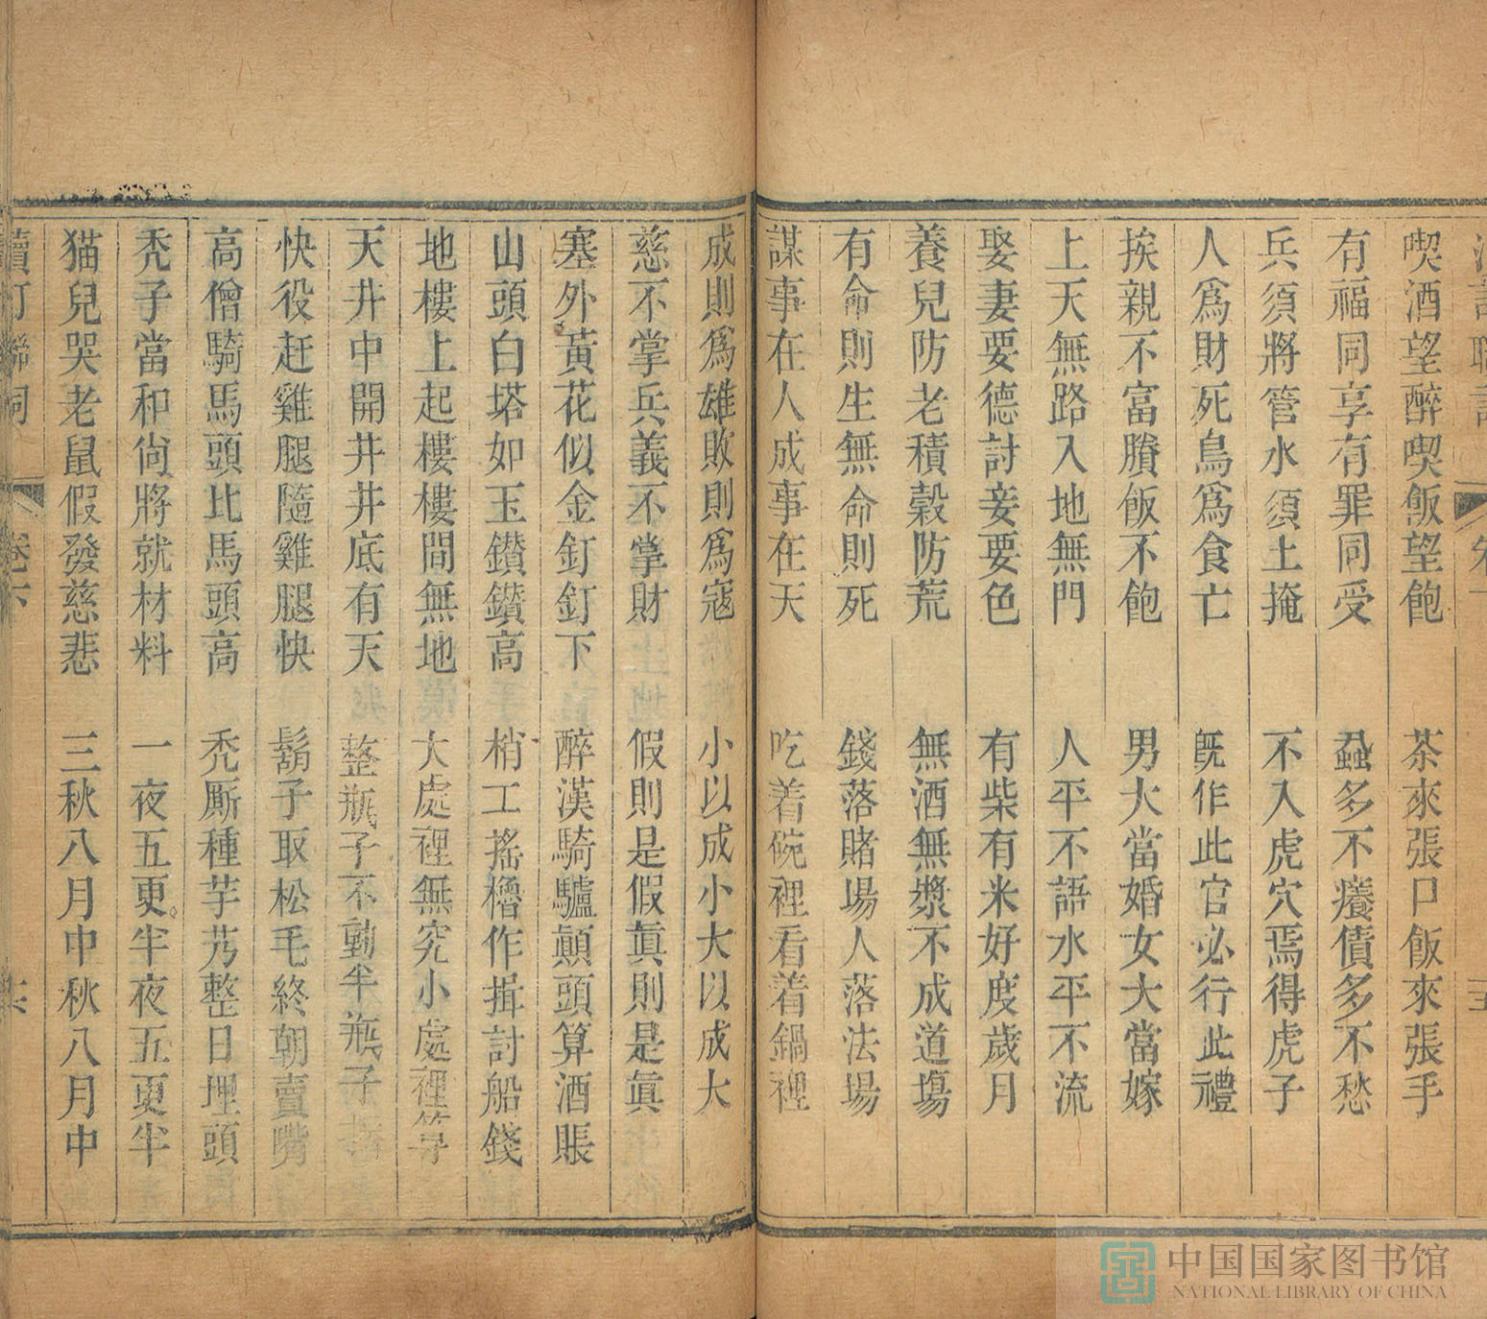 喫酒望醉喫飯望飽　茶來張口飯來張手
有福同享有罪同受　蝨多不癢債多不愁
兵須將管水須土掩　不入虎穴焉得虎子
人爲財死鳥爲食亡　旣作此官必行此禮
挨親不富賸飯不飽　男大當婚女大當嫁
上天無路入地無門　人平不語水平不流
娶妻要德討妾要色　有柴有米好度歲月
養兒防老積穀防荒　無酒無漿不成道塲
有命則生無命則死　錢落賭場人落法場
謀事在人成事在天　吃着碗裡看着鍋裡
成則爲雄敗則爲寇　小以成小大以成大
慈不掌兵義不掌財　假則是假眞則是眞
塞外黃花似金釘釘下　醉漢騎驢顚頭算酒賬
山頭白塔如玉鑽鑽高　梢工搖櫓作揖討船錢
地樓上起樓樓間無地　大處裡無究小處裡
天井中開井井底有天　整瓶子不動半瓶子
快役赶雞腿隨雞腿快　鬍子取松毛終朝賣嘴
高僧騎馬頭比馬頭高　禿厮種芋艿整日埋頭
禿子當和尙將就材料　一夜五更半夜五更半
猫兒哭老鼠假發慈悲　三秋八月中秋八月中
卷六
中国国家图书馆
NATIONAL LIBRARY OF CHINA